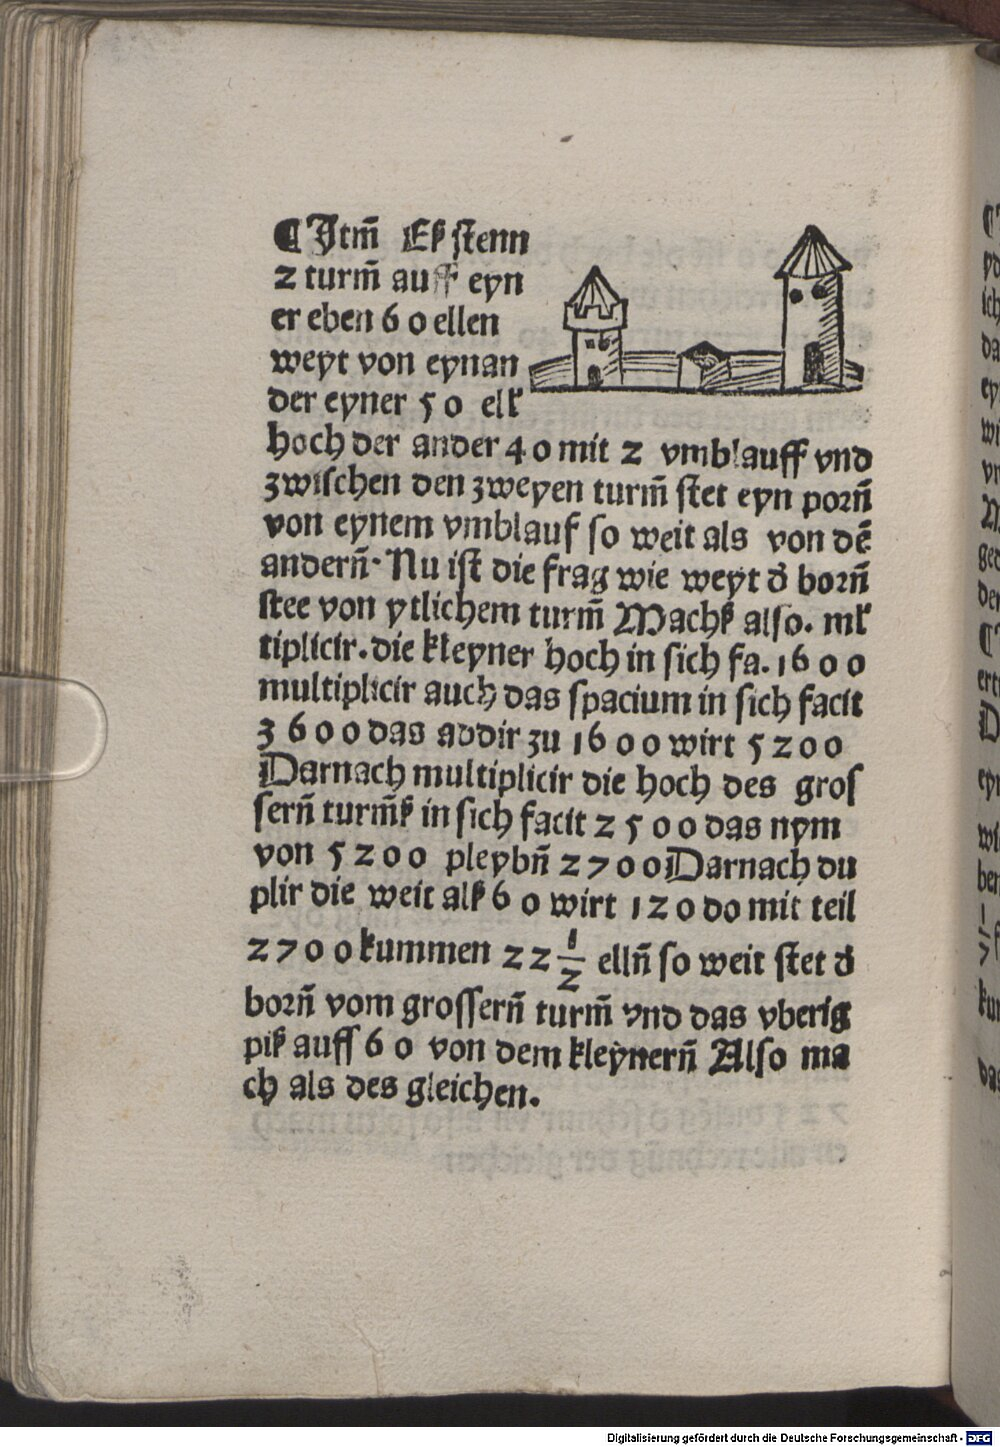 ¶ Jtm̄ Eſʒ ſtenn
2 turm̄ auff eyn
er eben 60 ellen
weyt von eynan
der eyner 50 ellꝭ
hoch der ander 40 mit 2 vmblauff vnd
zwiſchen den zweyen turm̄ ſtet eyn porn̄
von eynem vmblauf ſo weit als von dē
andern̄. Nu iſt die frag wie weyt d̕ born̄
ſtee von ytlichem turm̄ Machſʒ alſo. ml̕
tiplicir. die kleyner hoch in ſich fa. 1600
multiplicir auch das ſpacium in ſich facit
3600 das addir zu 1600 wirt 5200
Darnach multiplicir die hoch des groſ
ſern̄ turm̄ſʒ in ſich facit 2500 das nym
von 5200 pleybn̄ 2700 Darnach du
plir die weit alſʒ 60 wirt 120 do mit teil
2700 kummen 22 1/2 elln̄ ſo weit ſtet d̕
born̄ vom groſſern̄ turm̄ vnd das vberig
piſʒ auff 60 von dem kleynern̄ Alſo ma
ch als des gleichen.
Digitalisierung gefördert durch die Deutsche Forschungsgemeinschaft - DFG